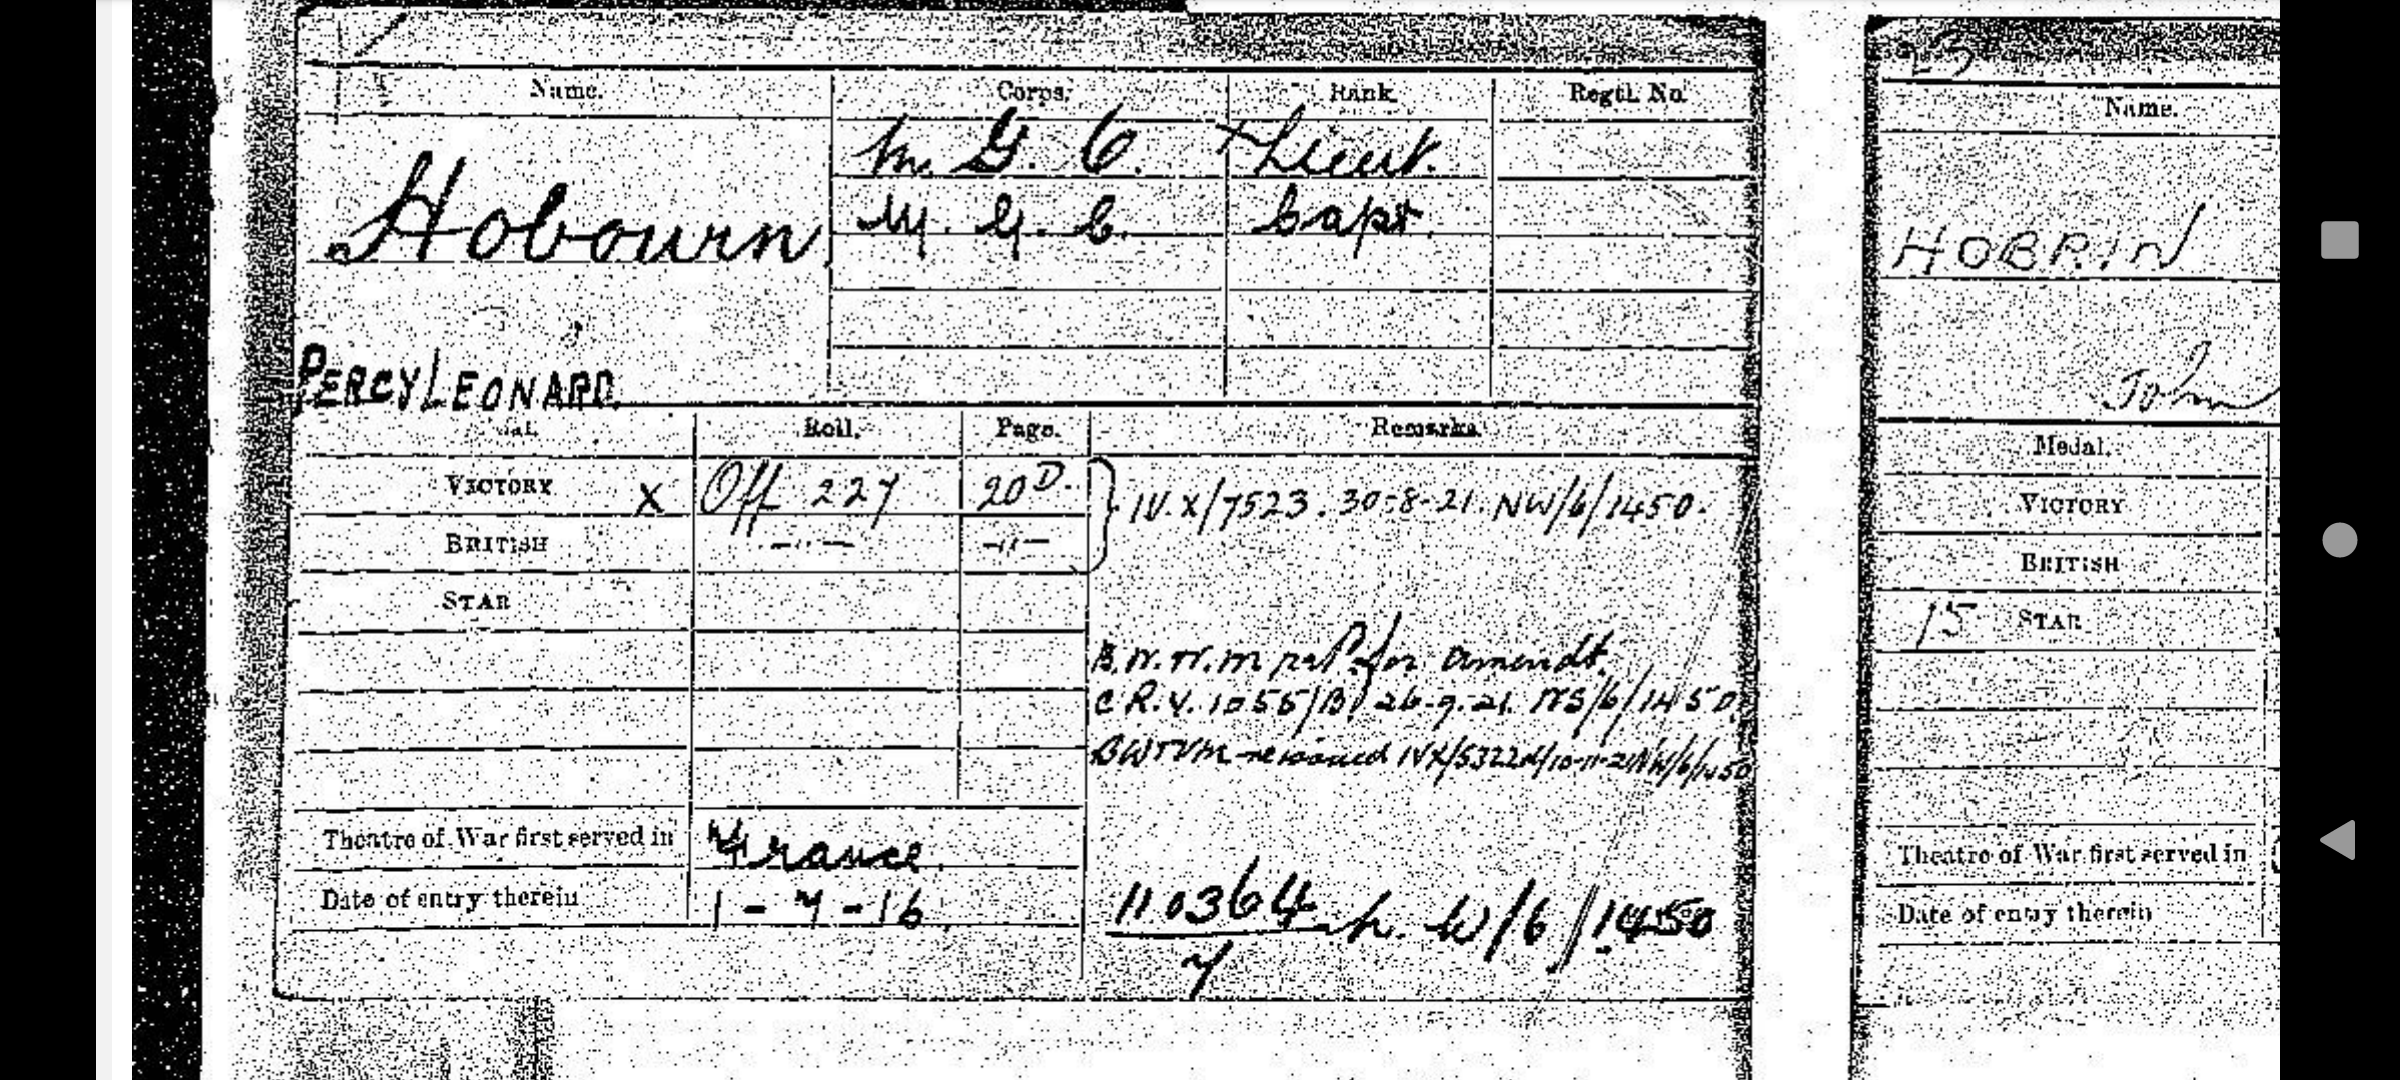 Name. Corps. Rank. Regtl. No.
Hobourn, M. G. C. + Lieut.
M. G. C. Capt.
PERCY LEONARD.
Roll. Page. Remarks.
VICTORY X Off 227 20D. } IV.X/7523. 30-8-21. NW/6/1450.
BRITISH -"- -"-
STAR
for amendt.
C R.V. 1055/B/ 26-9-21. NS/6/1450.
reissued
Theatre of War first served in France.
Date of entry therein 1-7-16
110364
7
W/6/1450
23
Name.
HOBRIN
John
Medal.
VICTORY
BRITISH
15 STAR
Theatre of War first served in
Date of entry therein